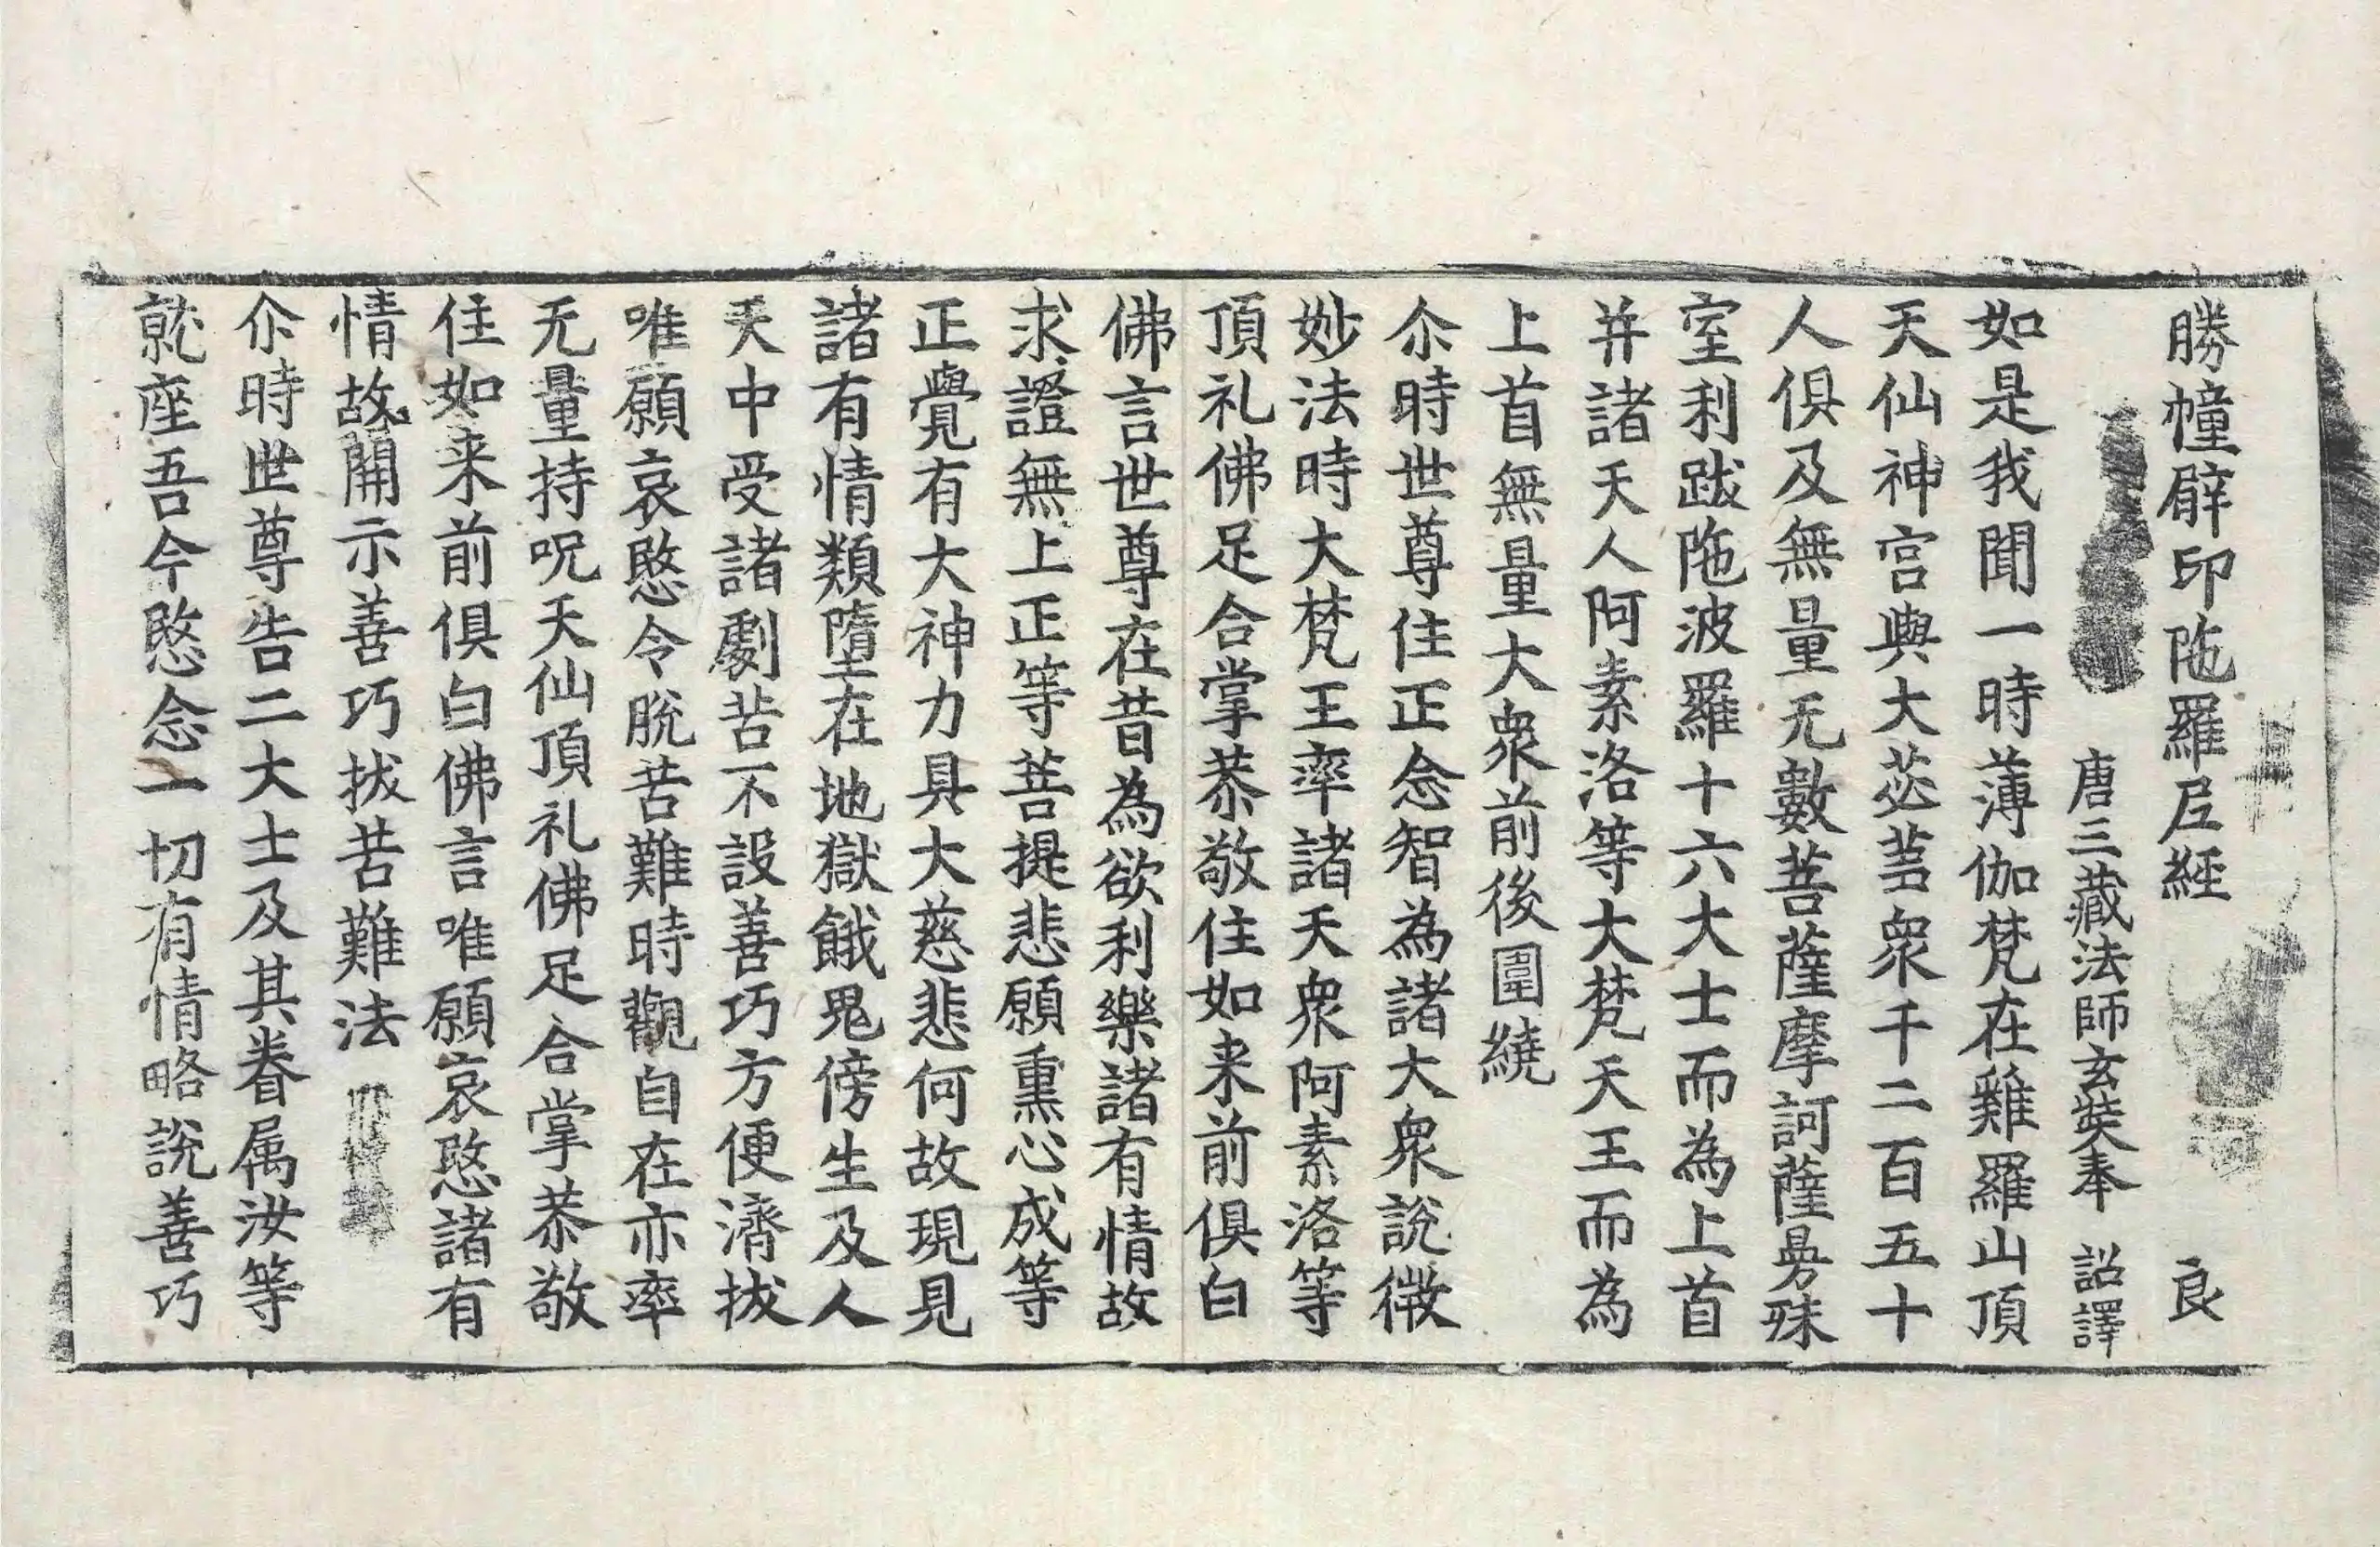 勝幢臂印陁羅尼經 良
唐三藏法師玄奘奉 詔譯
如是我聞一時薄伽梵在雞羅山頂
天仙神宮與大苾蒭衆千二百五十
人俱及無量无數菩薩摩訶薩曼殊
室利跋陁波羅十六大士而為上首
并諸天人阿素洛等大梵天王而為
上首無量大衆前後圍繞
尒時世尊住正念智為諸大衆說微
妙法時大梵王率諸天衆阿素洛等
頂礼佛足合掌恭敬住如来前俱白
佛言世尊在昔為欲利樂諸有情故
求證無上正等菩提悲願熏心成等
正覺有大神力具大慈悲何故現見
諸有情類墮在地獄餓鬼傍生及人
天中受諸劇苦不設善巧方便濟拔
唯願哀愍令脫苦難時觀自在亦率
无量持呪天仙頂礼佛足合掌恭敬
住如来前俱白佛言唯願哀愍諸有
情故開示善巧拔苦難法
尒時世尊告二大士及其眷属汝等
就座吾今愍念一切有情略說善巧